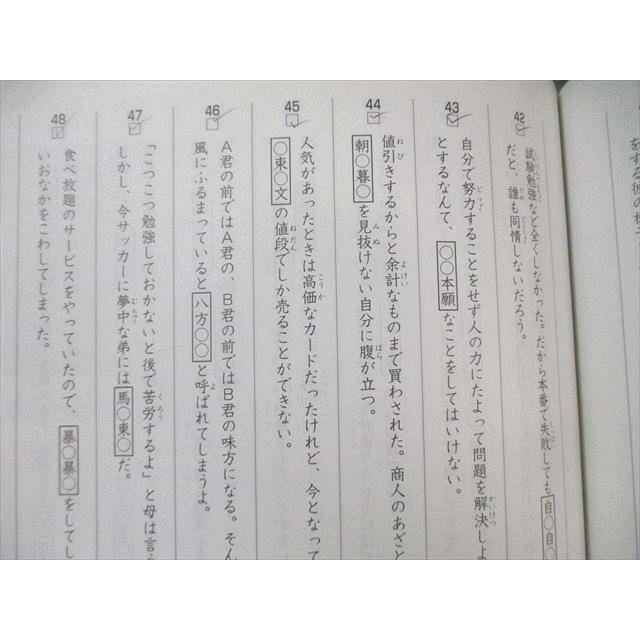 をする彼のせ
42
試験勉強など全くしなかった。だから本番で失敗しても自○自○
だと、誰も同情しないだろう。
43
自分で努力することをせず人の力にたよって問題を解決しよ
とするなんて、○○本願なことをしてはいけない。
44
値引きするからと余計なものまで買わされた。商人のあざと
朝○暮○を見抜けない自分に腹が立つ。
45
人気があったときは高価なカードだったけれど、今となって
○束○文の値段でしか売ることができない。
46
A君の前ではA君の、B君の前ではB君の味方になる。そん
風にふるまっていると八方○○と呼ばれてしまうよ。
47
「こつこつ勉強しておかないと後で苦労するよ」と母は言う
しかし、今サッカーに夢中な弟には馬○東○だ。
48
食べ放題のサービスをやっていたので、暴○暴○をしてし
いおなかをこわしてしまった。